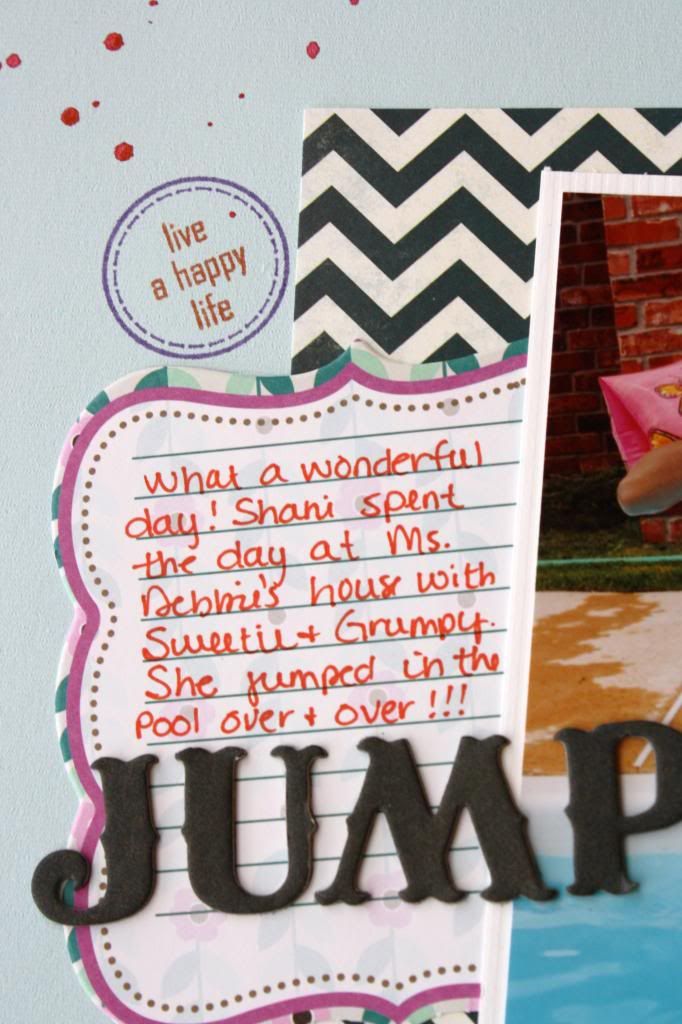 live
a happy
life
What a wonderful
day! Shani spent
the day at Ms.
Debbie's house with
Sweetie + Grumpy.
She jumped in the
pool over + over!!!
JUMP